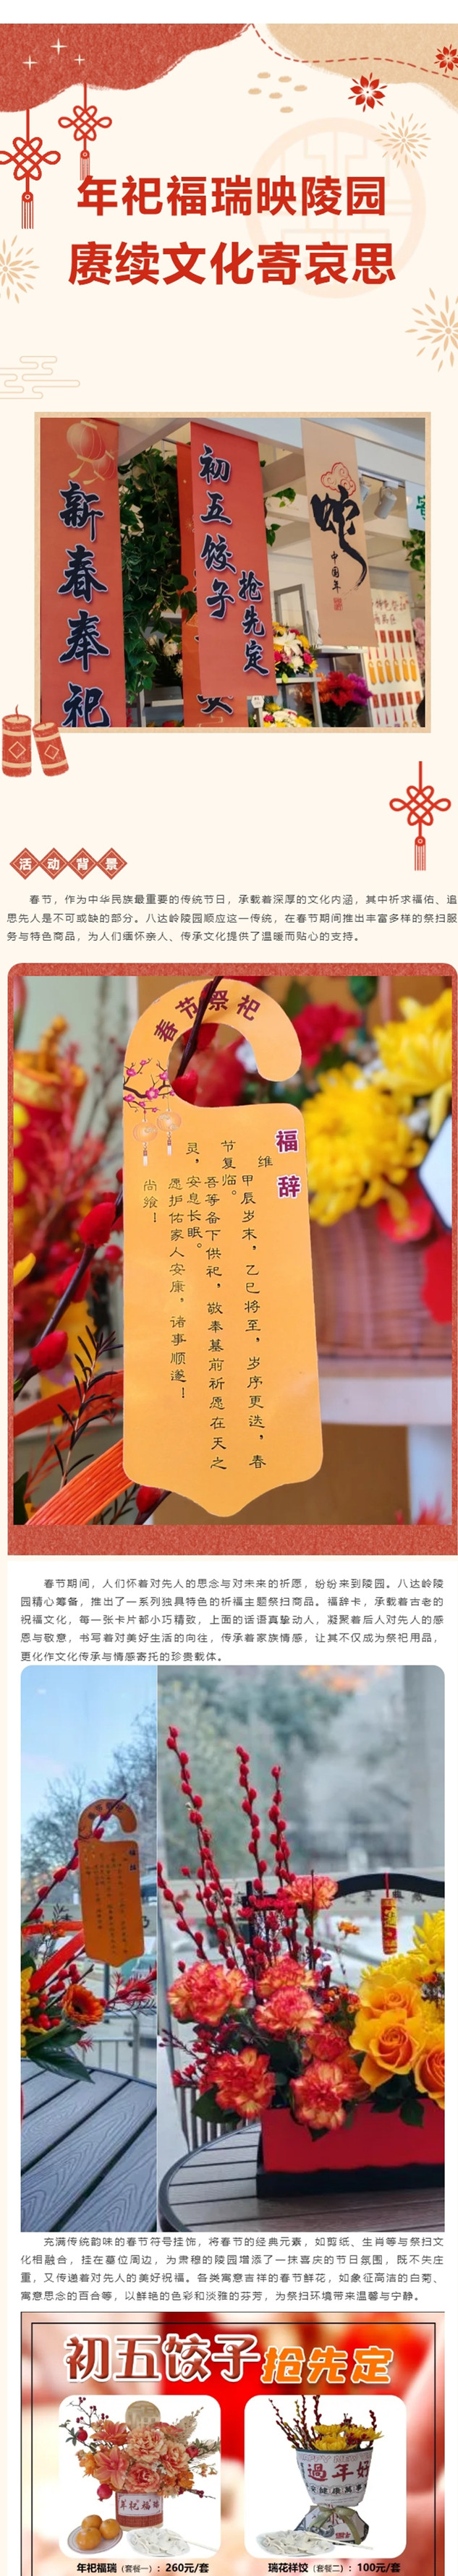 年祀福瑞映陵园
赓续文化寄哀思
新春奉祀
初五饺子
抢先定
蛇
中国年
活动背景
春节，作为中华民族最重要的传统节日，承载着深厚的文化内涵，其中祈求福佑、追
思先人是不可或缺的部分。八达岭陵园顺应这一传统，在春节期间推出丰富多样的祭扫服
务与特色商品，为人们缅怀亲人、传承文化提供了温暖而贴心的支持。
春节祭祀
福辞
维
甲辰岁末，乙巳将至，岁序更迭，春
节复临。
吾等备下供祀，敬奉墓前祈愿在天之
灵，安息长眠。
愿护佑家人安康，诸事顺遂！
尚飨！
春节期间，人们怀着对先人的思念与对未来的祈愿，纷纷来到陵园。八达岭陵
园精心筹备，推出了一系列独具特色的祈福主题祭扫商品。福辞卡，承载着古老的
祝福文化，每一张卡片都小巧精致，上面的话语真挚动人，凝聚着后人对先人的感
恩与敬意，书写着对美好生活的向往，传承着家族情感，让其不仅成为祭祀用品，
更化作文化传承与情感寄托的珍贵载体。
充满传统韵味的春节符号挂饰，将春节的经典元素，如剪纸、生肖等与祭扫文
化相融合，挂在墓位周边，为肃穆的陵园增添了一抹喜庆的节日氛围，既不失庄
重，又传递着对先人的美好祝福。各类寓意吉祥的春节鲜花，如象征高洁的白菊、
寓意思念的百合等，以鲜艳的色彩和淡雅的芬芳，为祭扫环境带来温馨与宁静。
初五饺子抢先定
年祀福瑞
過年好
年祀福瑞（套餐一）：260元/套
瑞花祥饺（套餐二）：100元/套